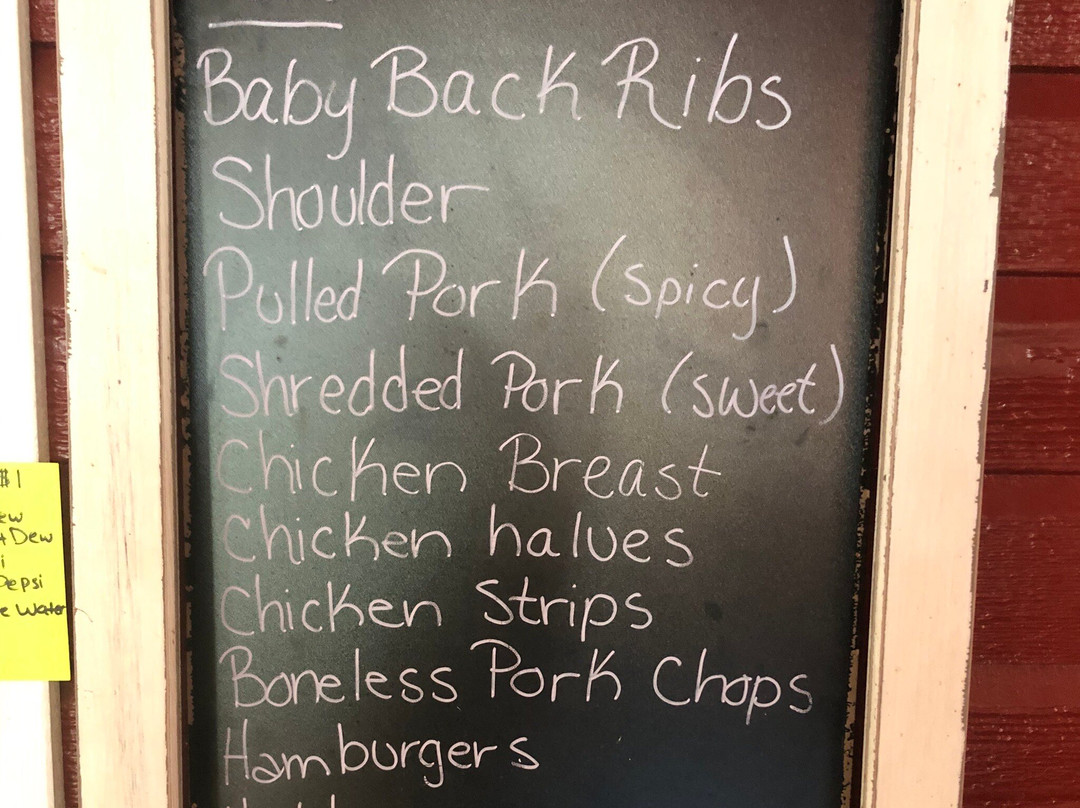 Baby Back Ribs
Shoulder
Pulled Pork (spicy)
Shredded Pork (sweet)
Chicken Breast
Chicken halves
Chicken Strips
Boneless Pork Chops
Hamburgers
$1
Dew
Depsi
Water